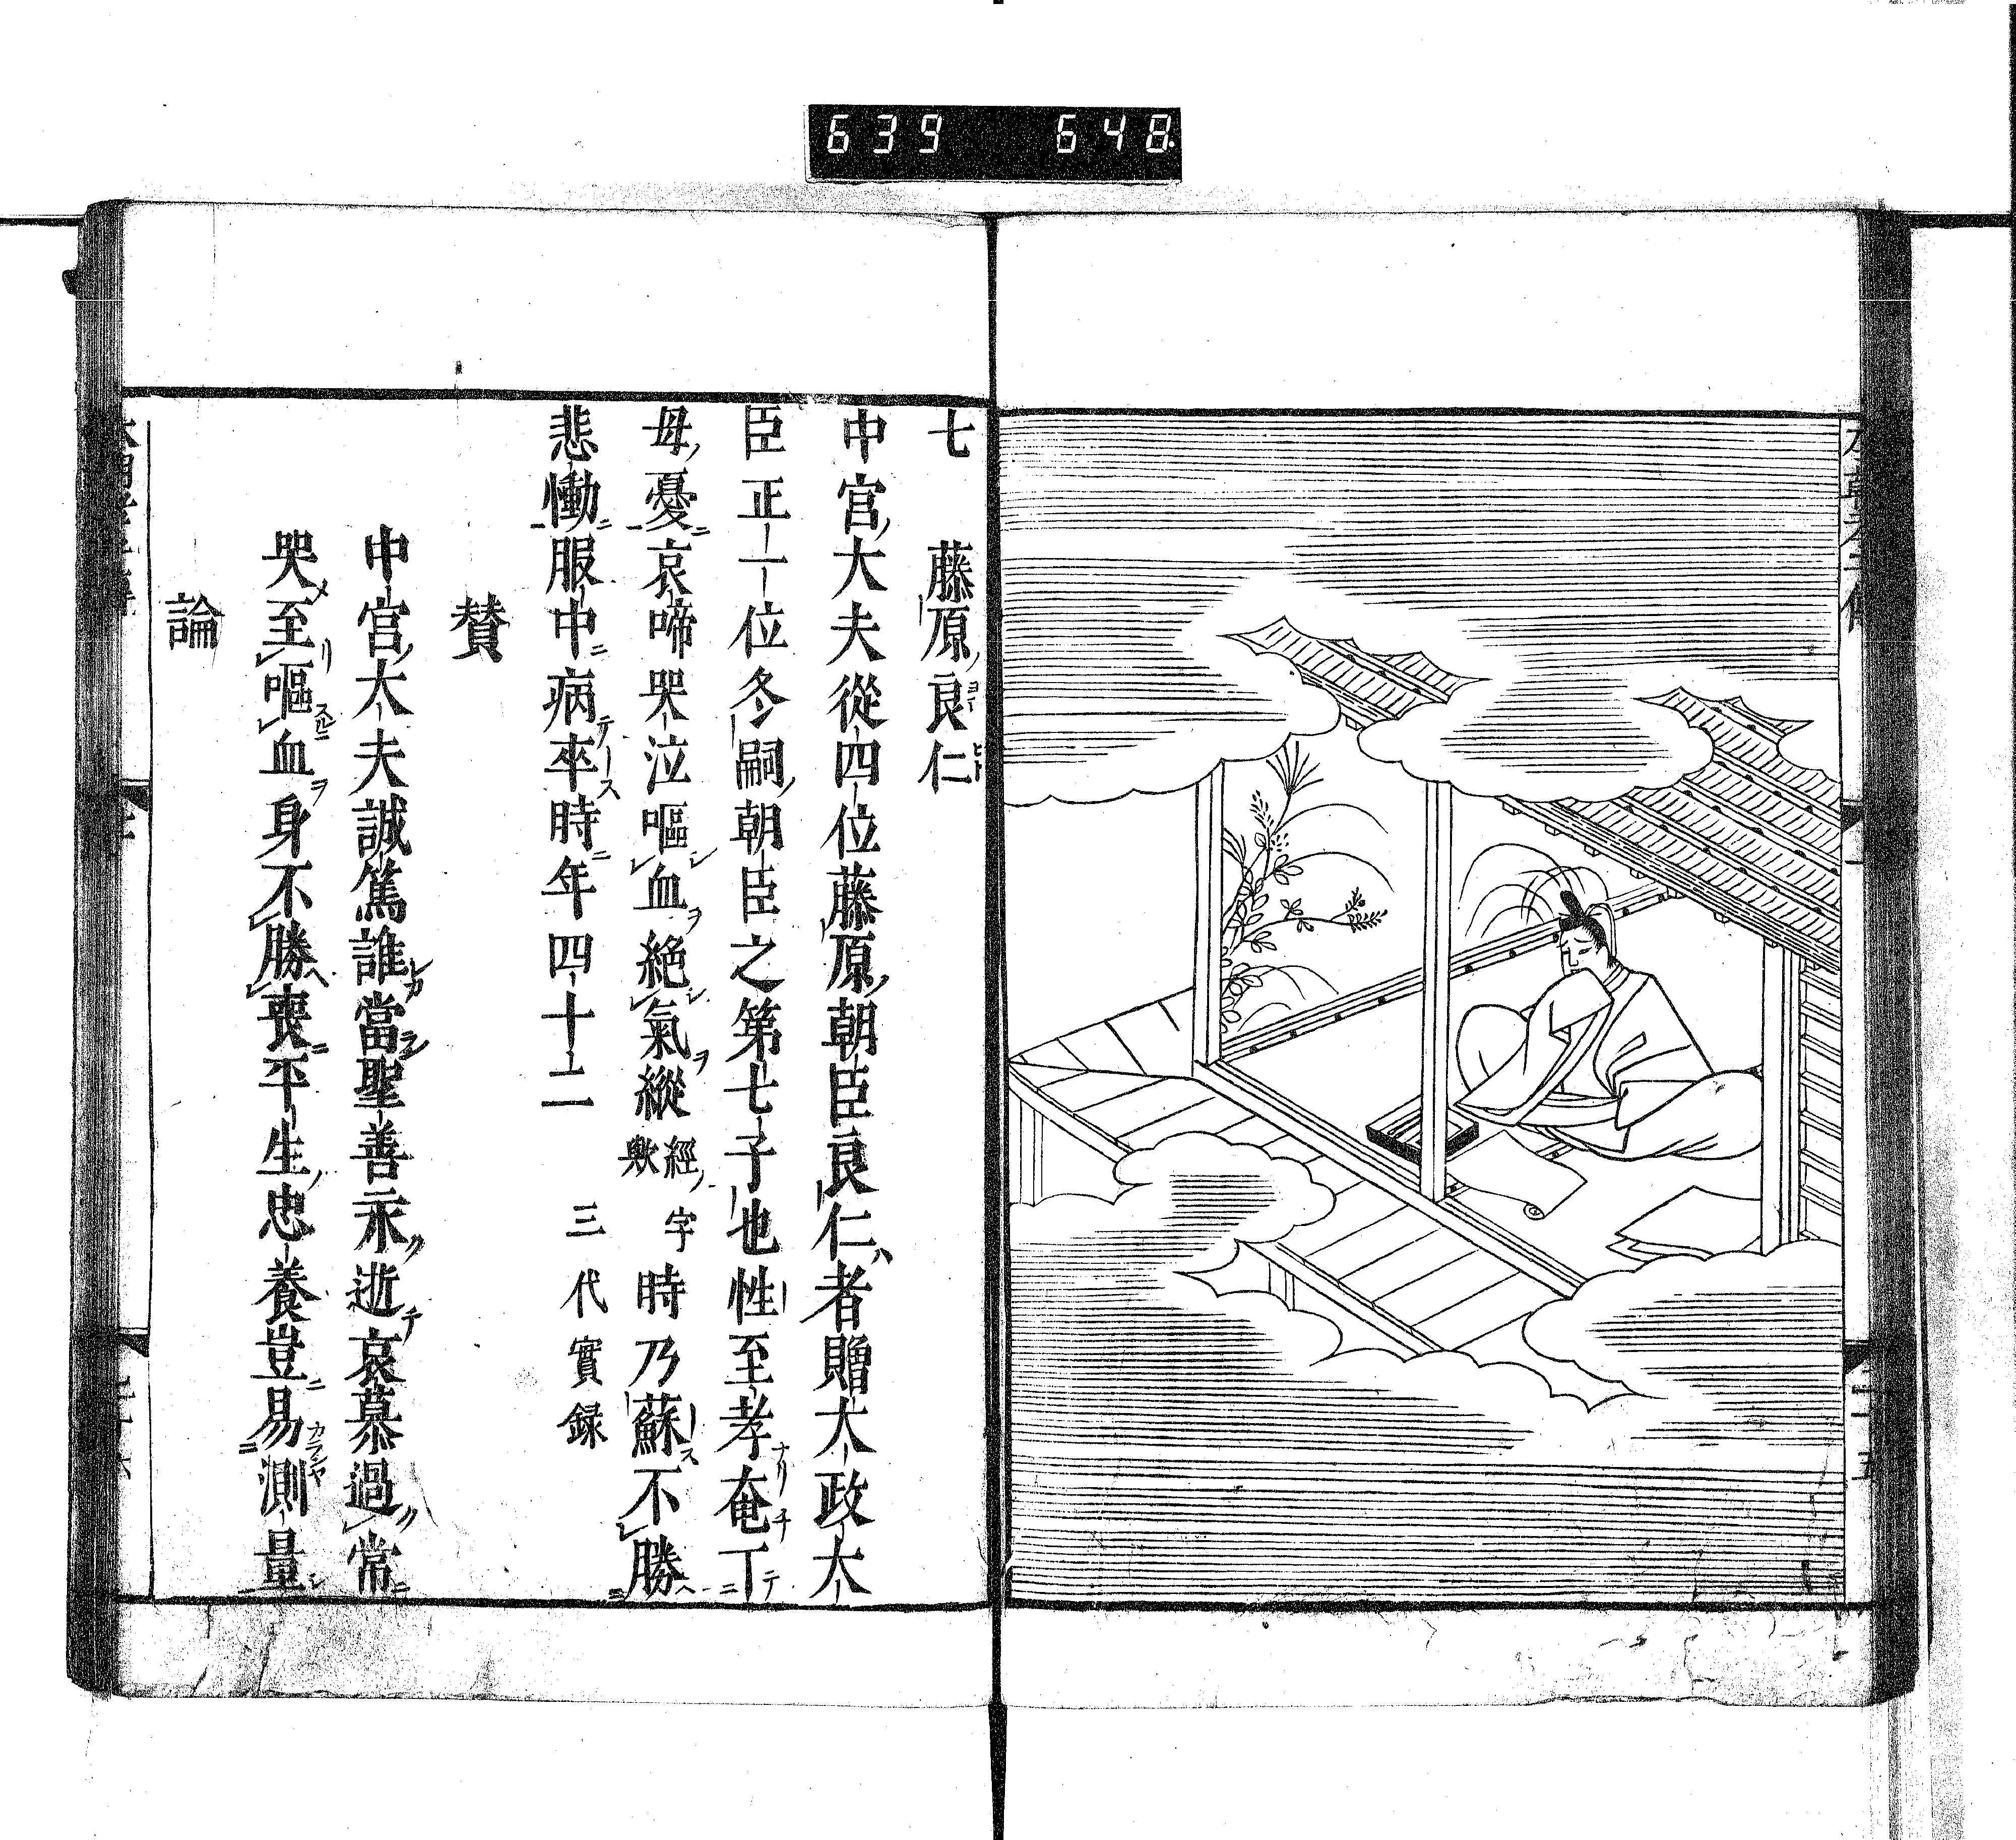 639 648
七 藤原良仁
中宮大夫從四位藤原朝臣良仁者贈太政大
臣正一位冬嗣朝臣之第七子也性至孝奄丁
母憂哀啼哭泣嘔血絶氣縱經字歟時乃蘇不勝
悲慟服中病卒時年四十二 三代實録
賛
中宮大夫誠篤誰當聖善永逝哀慕過常
哭至嘔血身不勝喪平生忠養豈易測量
論